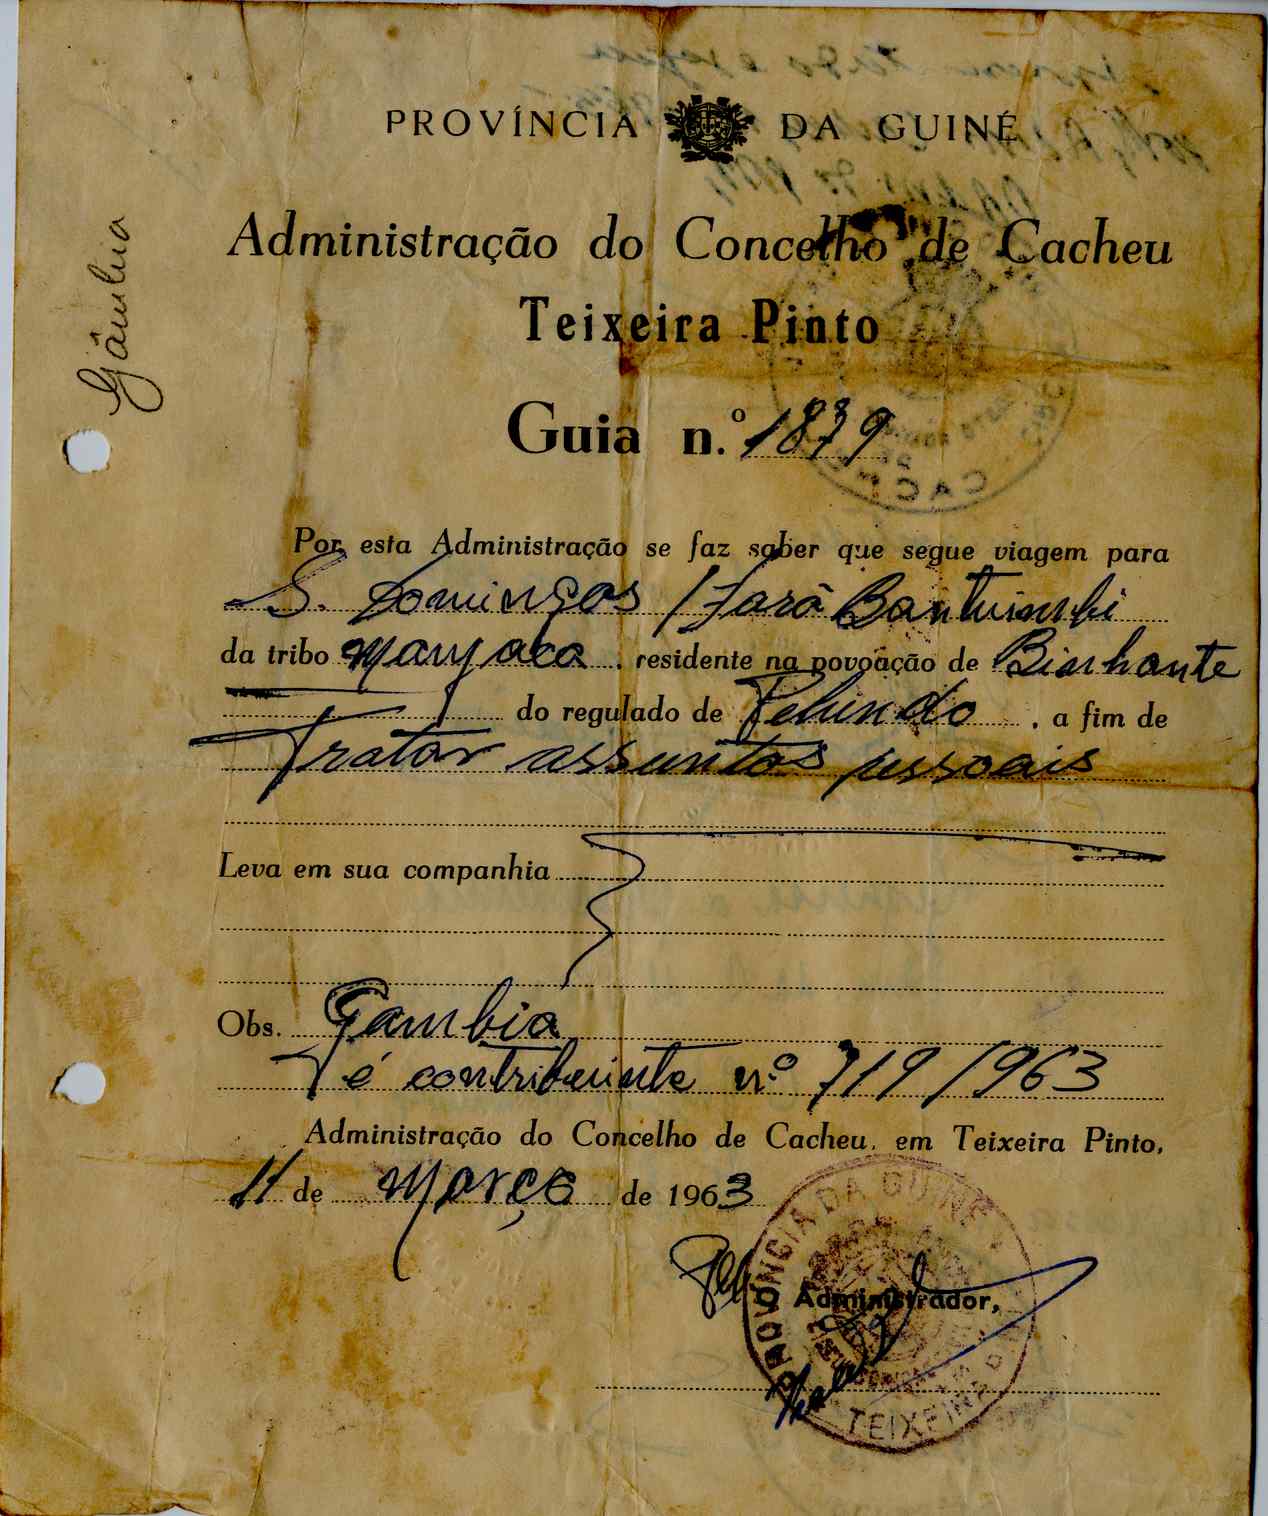 Gâmbia
PROVÍNCIA DA GUINÉ
Administração do Concelho de Cacheu
Teixeira Pinto
Guia n.º 1879
Por esta Administração se faz saber que segue viagem para
S. Domingos / Jarô Bantuimbi
da tribo Manjaca, residente na povoação de Binhante
do regulado de Pelundo, a fim de
Tratar assuntos pessoais
Leva em sua companhia
Obs. Gambia
é contribuinte n.º 719/963
Administração do Concelho de Cacheu, em Teixeira Pinto,
11 de Março de 1963
Pel Administrador,
PROVÍNCIA DA GUINÉ
TEIXEIRA
CAC